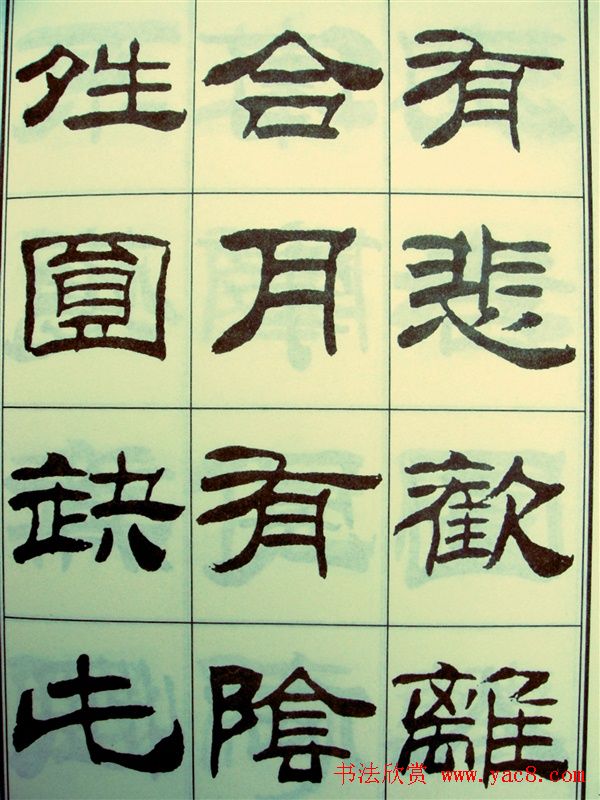 有悲歡離
合月有陰
夝圓缺此
书法欣赏 www.yac8.com